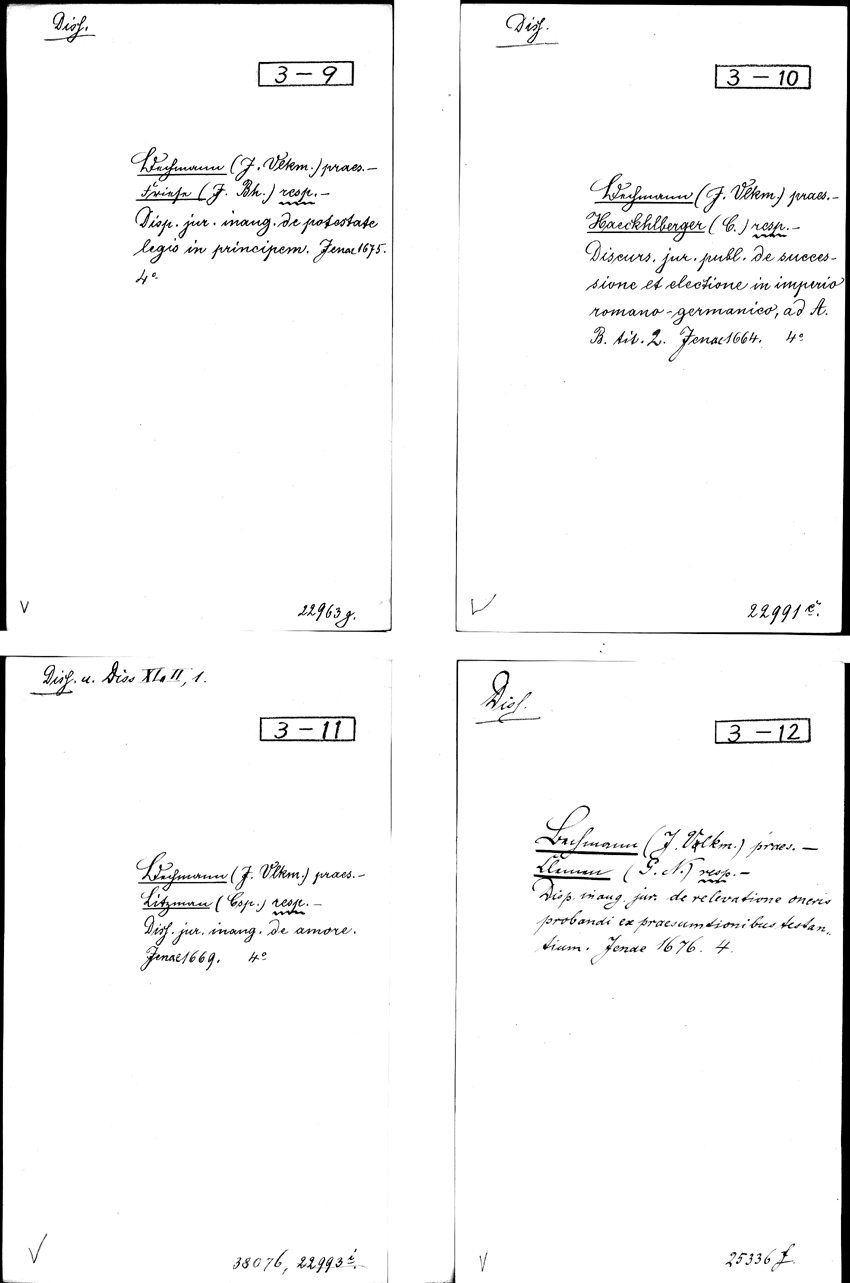 Diss.
3 - 9
Bechmann (J. Vlkm.) praes. —
Friese (J. Bh.) resp. —
Disp. jur. inaug. de potestate
legis in principem. Jenae 1675.
4°
V
22963 g.
Diss.
3 - 10
Bechmann (J. Vlkm.) praes. —
Haeckhlberger (C.) resp. —
Discurs. jur. publ. de succes-
sione et electione in imperio
romano-germanico, ad A.
B. tit. 2. Jenae 1664. 4°
V
22991 e.
Diss. u. Diss XIa II, 1.
3 - 11
Bechmann (J. Vlkm.) praes. —
Litzman (Csp.) resp. —
Diss. jur. inaug. de amore.
Jenae 1669. 4°
V
38076, 22993 i.
Diss.
3 - 12
Bechmann (J. Volkm.) praes. —
Clemen (G. N.) resp. —
Disp. inaug. jur. de relevatione oneris
probandi ex praesumtionibus testan-
tium. Jenae 1676. 4.
V
25336 f.